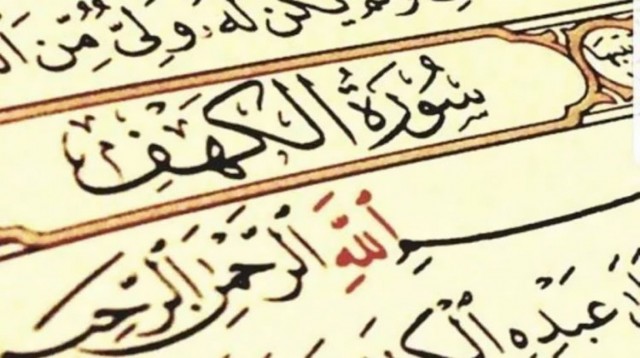 يكن له ولي من
سورة الكهف
بسم الله الرحمن الرحيم
عبده الك